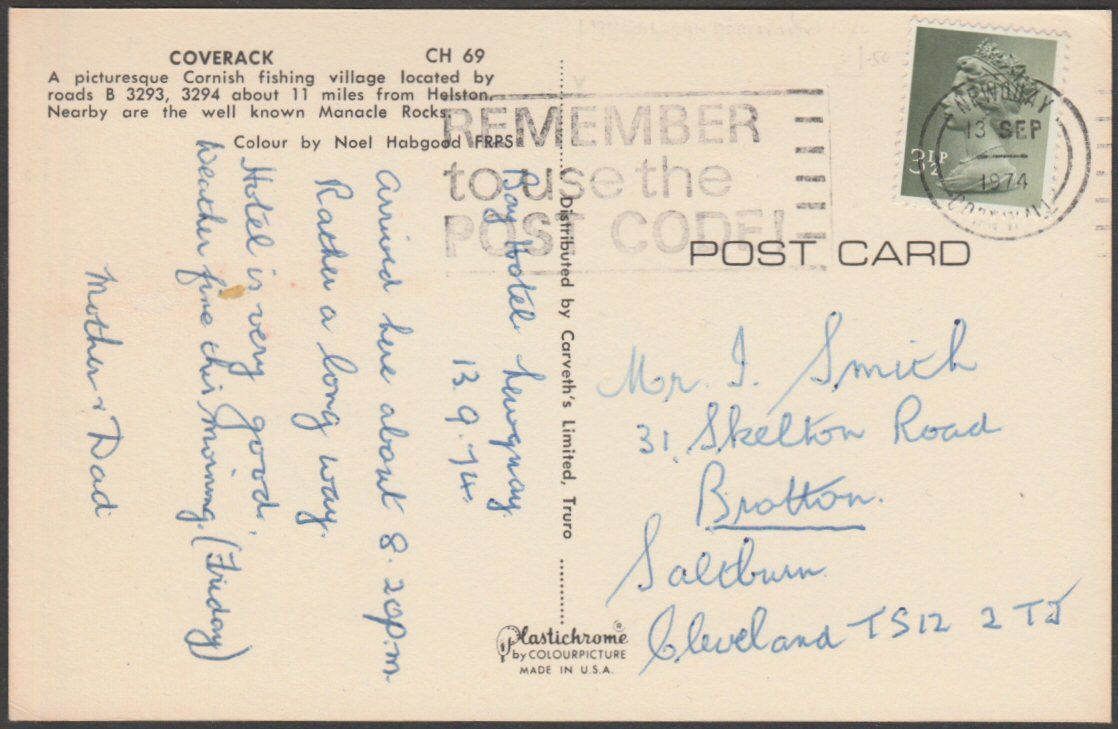 COVERACK CH 69
A picturesque Cornish fishing village located by
roads B 3293, 3294 about 11 miles from Helston.
Nearby are the well known Manacle Rocks.
Colour by Noel Habgood FRPS
REMEMBER
to use the
POST CODE!
NEWQUAY
13 SEP
1974
CORNWALL
3½P
POST CARD
Bay Hotel Newquay.
13.9.74.
Arrived here about 8.20p.m.
Rather a long way.
Hotel is very good.
Weather fine this morning. (Friday)
Mother & Dad
Distributed by Carveth's Limited, Truro
Mr. I. Smith
31, Skelton Road
Brotton.
Saltburn.
Cleveland TS12 2TJ
Plastichrome ®
by COLOURPICTURE
MADE IN U.S.A.